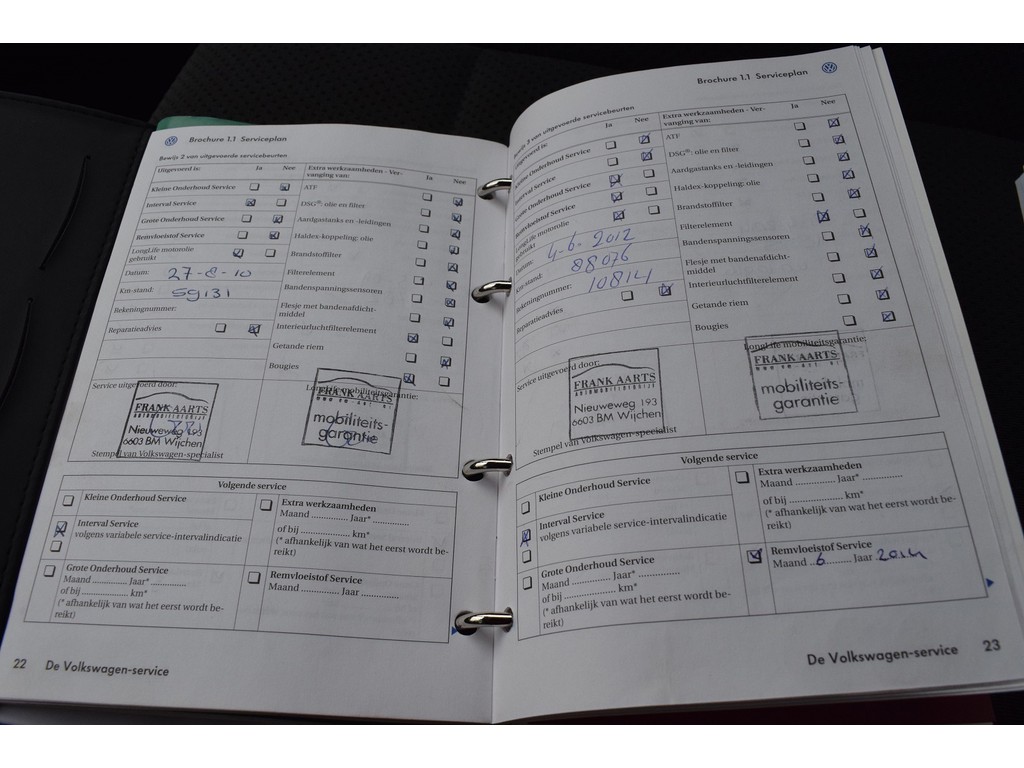 Brochure 1.1 Serviceplan
Bewijs 2 van uitgevoerde servicebeurten
Uitgevoerd is: Ja Nee
Kleine Onderhoud Service
Interval Service
Grote Onderhoud Service
Remvloeistof Service
LongLife motorolie
gebruikt
Datum: 27-8-10
Km-stand: 59131
Rekeningnummer:
Reparatieadvies
Extra werkzaamheden - Ver-
vanging van: Ja Nee
ATF
DSG®: olie en filter
Aardgastanks en -leidingen
Haldex-koppeling: olie
Brandstoffilter
Filterelement
Bandenspanningssensoren
Flesje met bandenafdicht-
middel
Interieurluchtfilterelement
Getande riem
Bougies
Service uitgevoerd door:
FRANK AARTS
Nieuweweg 193
6603 BM Wijchen
Stempel van Volkswagen-specialist
LongLife mobiliteitsgarantie:
FRANK AARTS
mobiliteits-
garantie
Volgende service
Kleine Onderhoud Service
Interval Service
volgens variabele service-intervalindicatie
Grote Onderhoud Service
Maand ............. Jaar* .............
of bij .............. km*
(* afhankelijk van wat het eerst wordt be-
reikt)
Extra werkzaamheden
Maand ............. Jaar* .............
of bij .............. km*
(* afhankelijk van wat het eerst wordt be-
reikt)
Remvloeistof Service
Maand ............. Jaar .............
22 De Volkswagen-service
Brochure 1.1 Serviceplan
Bewijs 3 van uitgevoerde servicebeurten
Uitgevoerd is: Ja Nee
Kleine Onderhoud Service
Interval Service
Grote Onderhoud Service
Remvloeistof Service
LongLife motorolie
gebruikt
Datum: 4-6-2012
Km-stand: 88076
Rekeningnummer: 10814
Reparatieadvies
Extra werkzaamheden - Ver-
vanging van: Ja Nee
ATF
DSG®: olie en filter
Aardgastanks en -leidingen
Haldex-koppeling: olie
Brandstoffilter
Filterelement
Bandenspanningssensoren
Flesje met bandenafdicht-
middel
Interieurluchtfilterelement
Getande riem
Bougies
Service uitgevoerd door:
FRANK AARTS
Nieuweweg 193
6603 BM Wijchen
Stempel van Volkswagen-specialist
LongLife mobiliteitsgarantie:
FRANK AARTS
mobiliteits-
garantie
Volgende service
Kleine Onderhoud Service
Interval Service
volgens variabele service-intervalindicatie
Grote Onderhoud Service
Maand ............. Jaar* .............
of bij .............. km*
(* afhankelijk van wat het eerst wordt be-
reikt)
Extra werkzaamheden
Maand ............. Jaar* .............
of bij .............. km*
(* afhankelijk van wat het eerst wordt be-
reikt)
Remvloeistof Service
Maand ..6.......... Jaar 2014
De Volkswagen-service 23